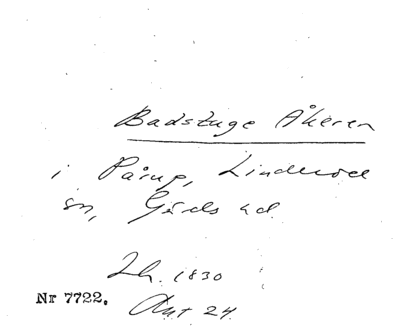 Badstuge Åkeren
i Pårup, Linderöd
sn, Gärds hd.
Lh. 1830
Nr 7722. Akt 24